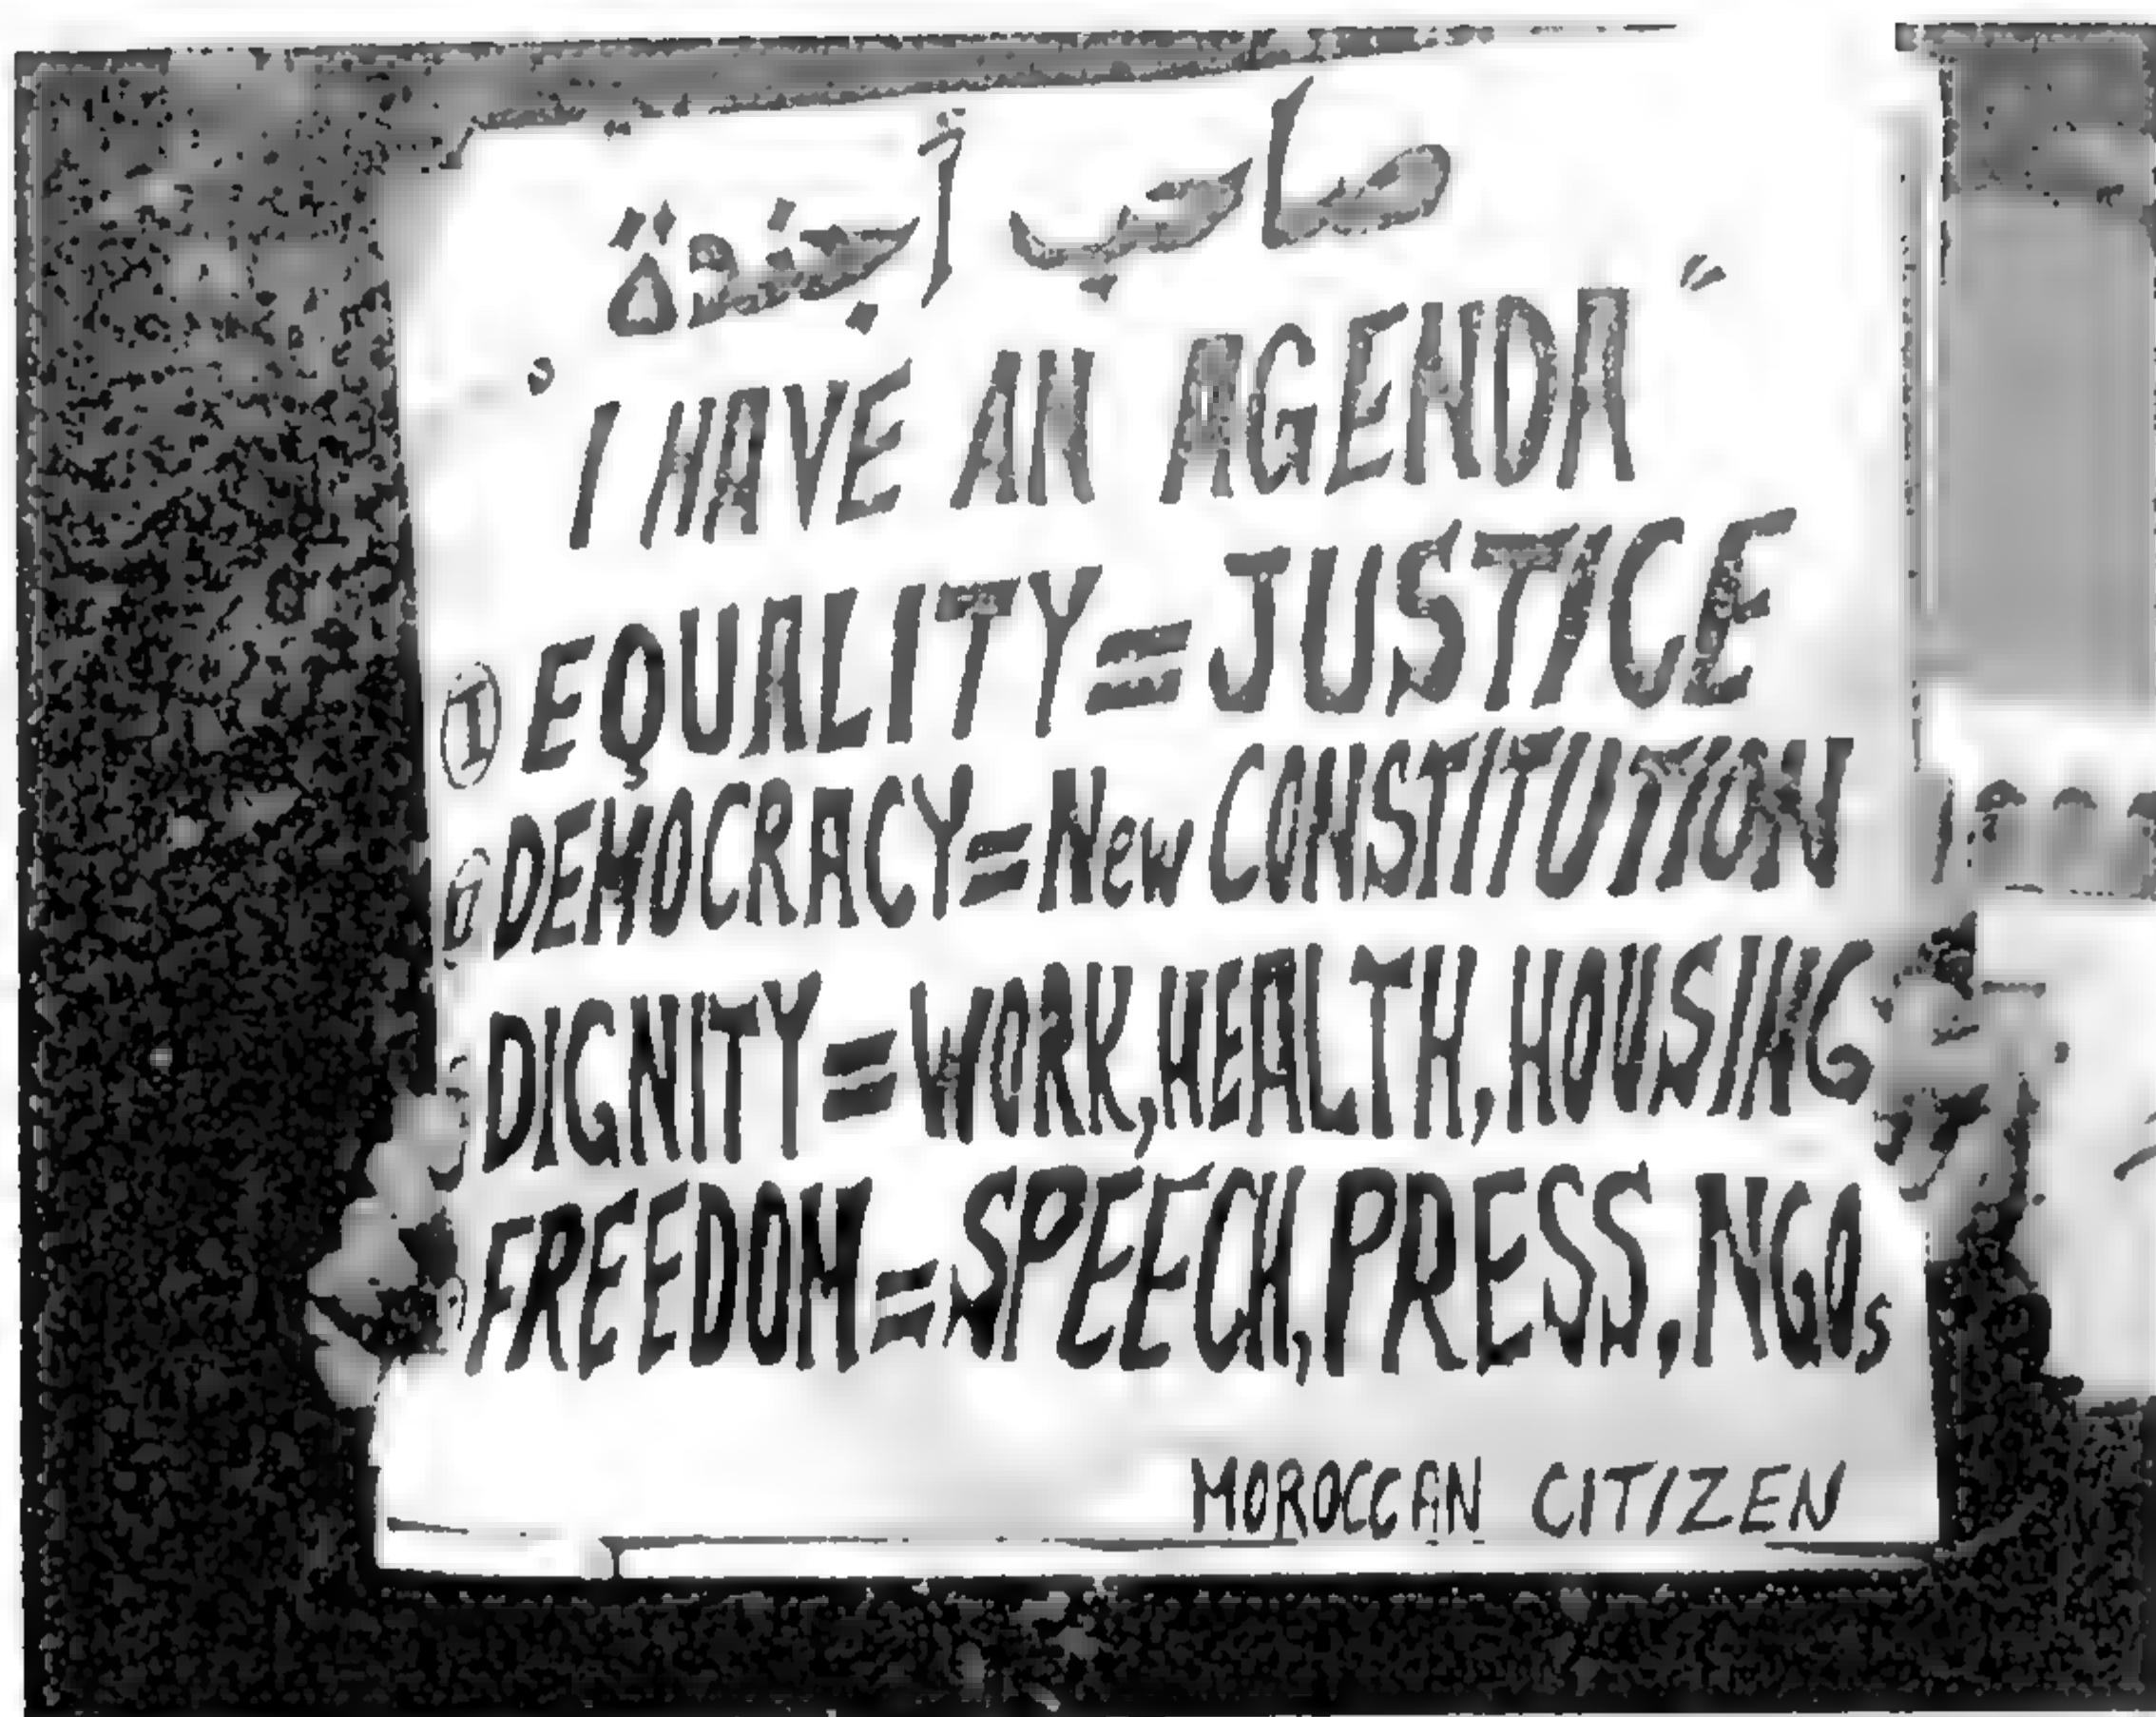 صاحب أجندة
"I HAVE AN AGENDA"
① EQUALITY = JUSTICE
DEMOCRACY = New CONSTITUTION
DIGNITY = WORK, HEALTH, HOUSING
FREEDOM = SPEECH, PRESS, NGOs
MOROCCAN CITIZEN